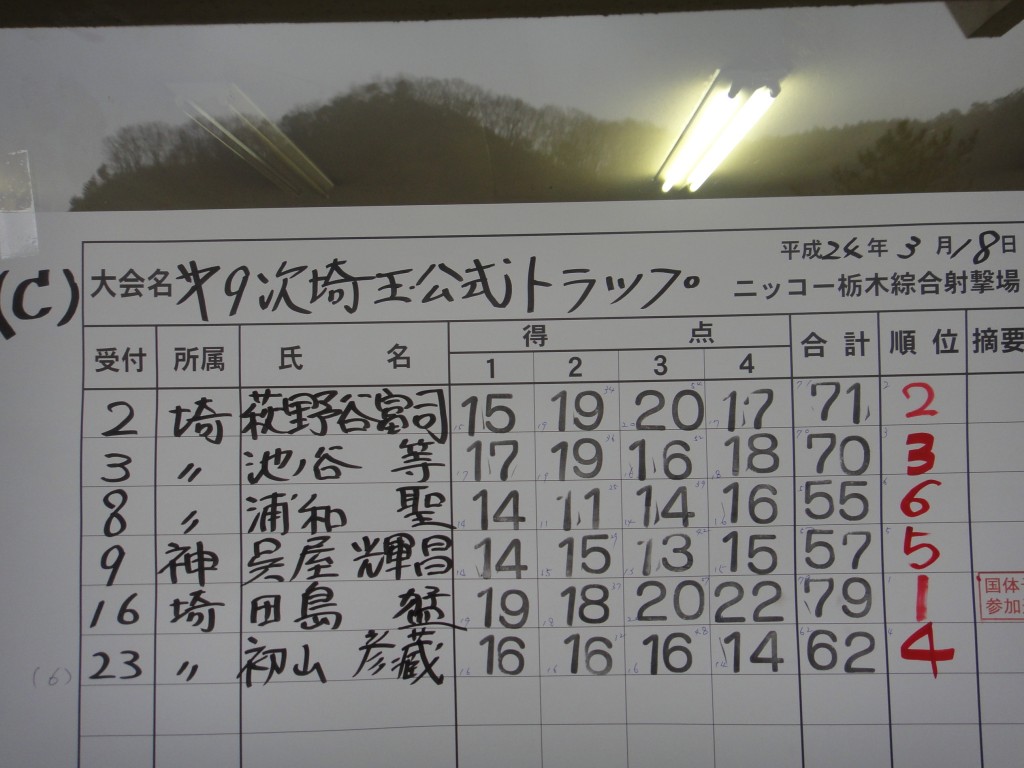 平成24年3月18日
(C) 大会名 第9次埼玉公式トラップ ニッコー栃木綜合射撃場
受付 所属 氏名 得点 合計 順位 摘要
1 2 3 4
2 埼 萩野谷富司 15 19 20 17 71 2
3 〃 池ノ谷 等 17 19 16 18 70 3
8 〃 浦和 聖 14 11 14 16 55 6
9 神 呉屋輝昌 14 15 13 15 57 5
16 埼 田島 猛 19 18 20 22 79 1 国体 参加
23 〃 初山彦蔵 16 16 16 14 62 4
(6)